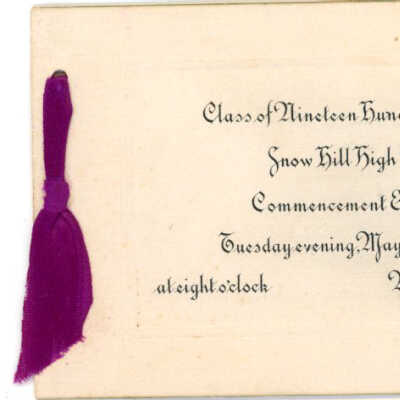 Class of Nineteen Hun
Snow Hill High
Commencement E
Tuesday evening, May
at eight o'clock